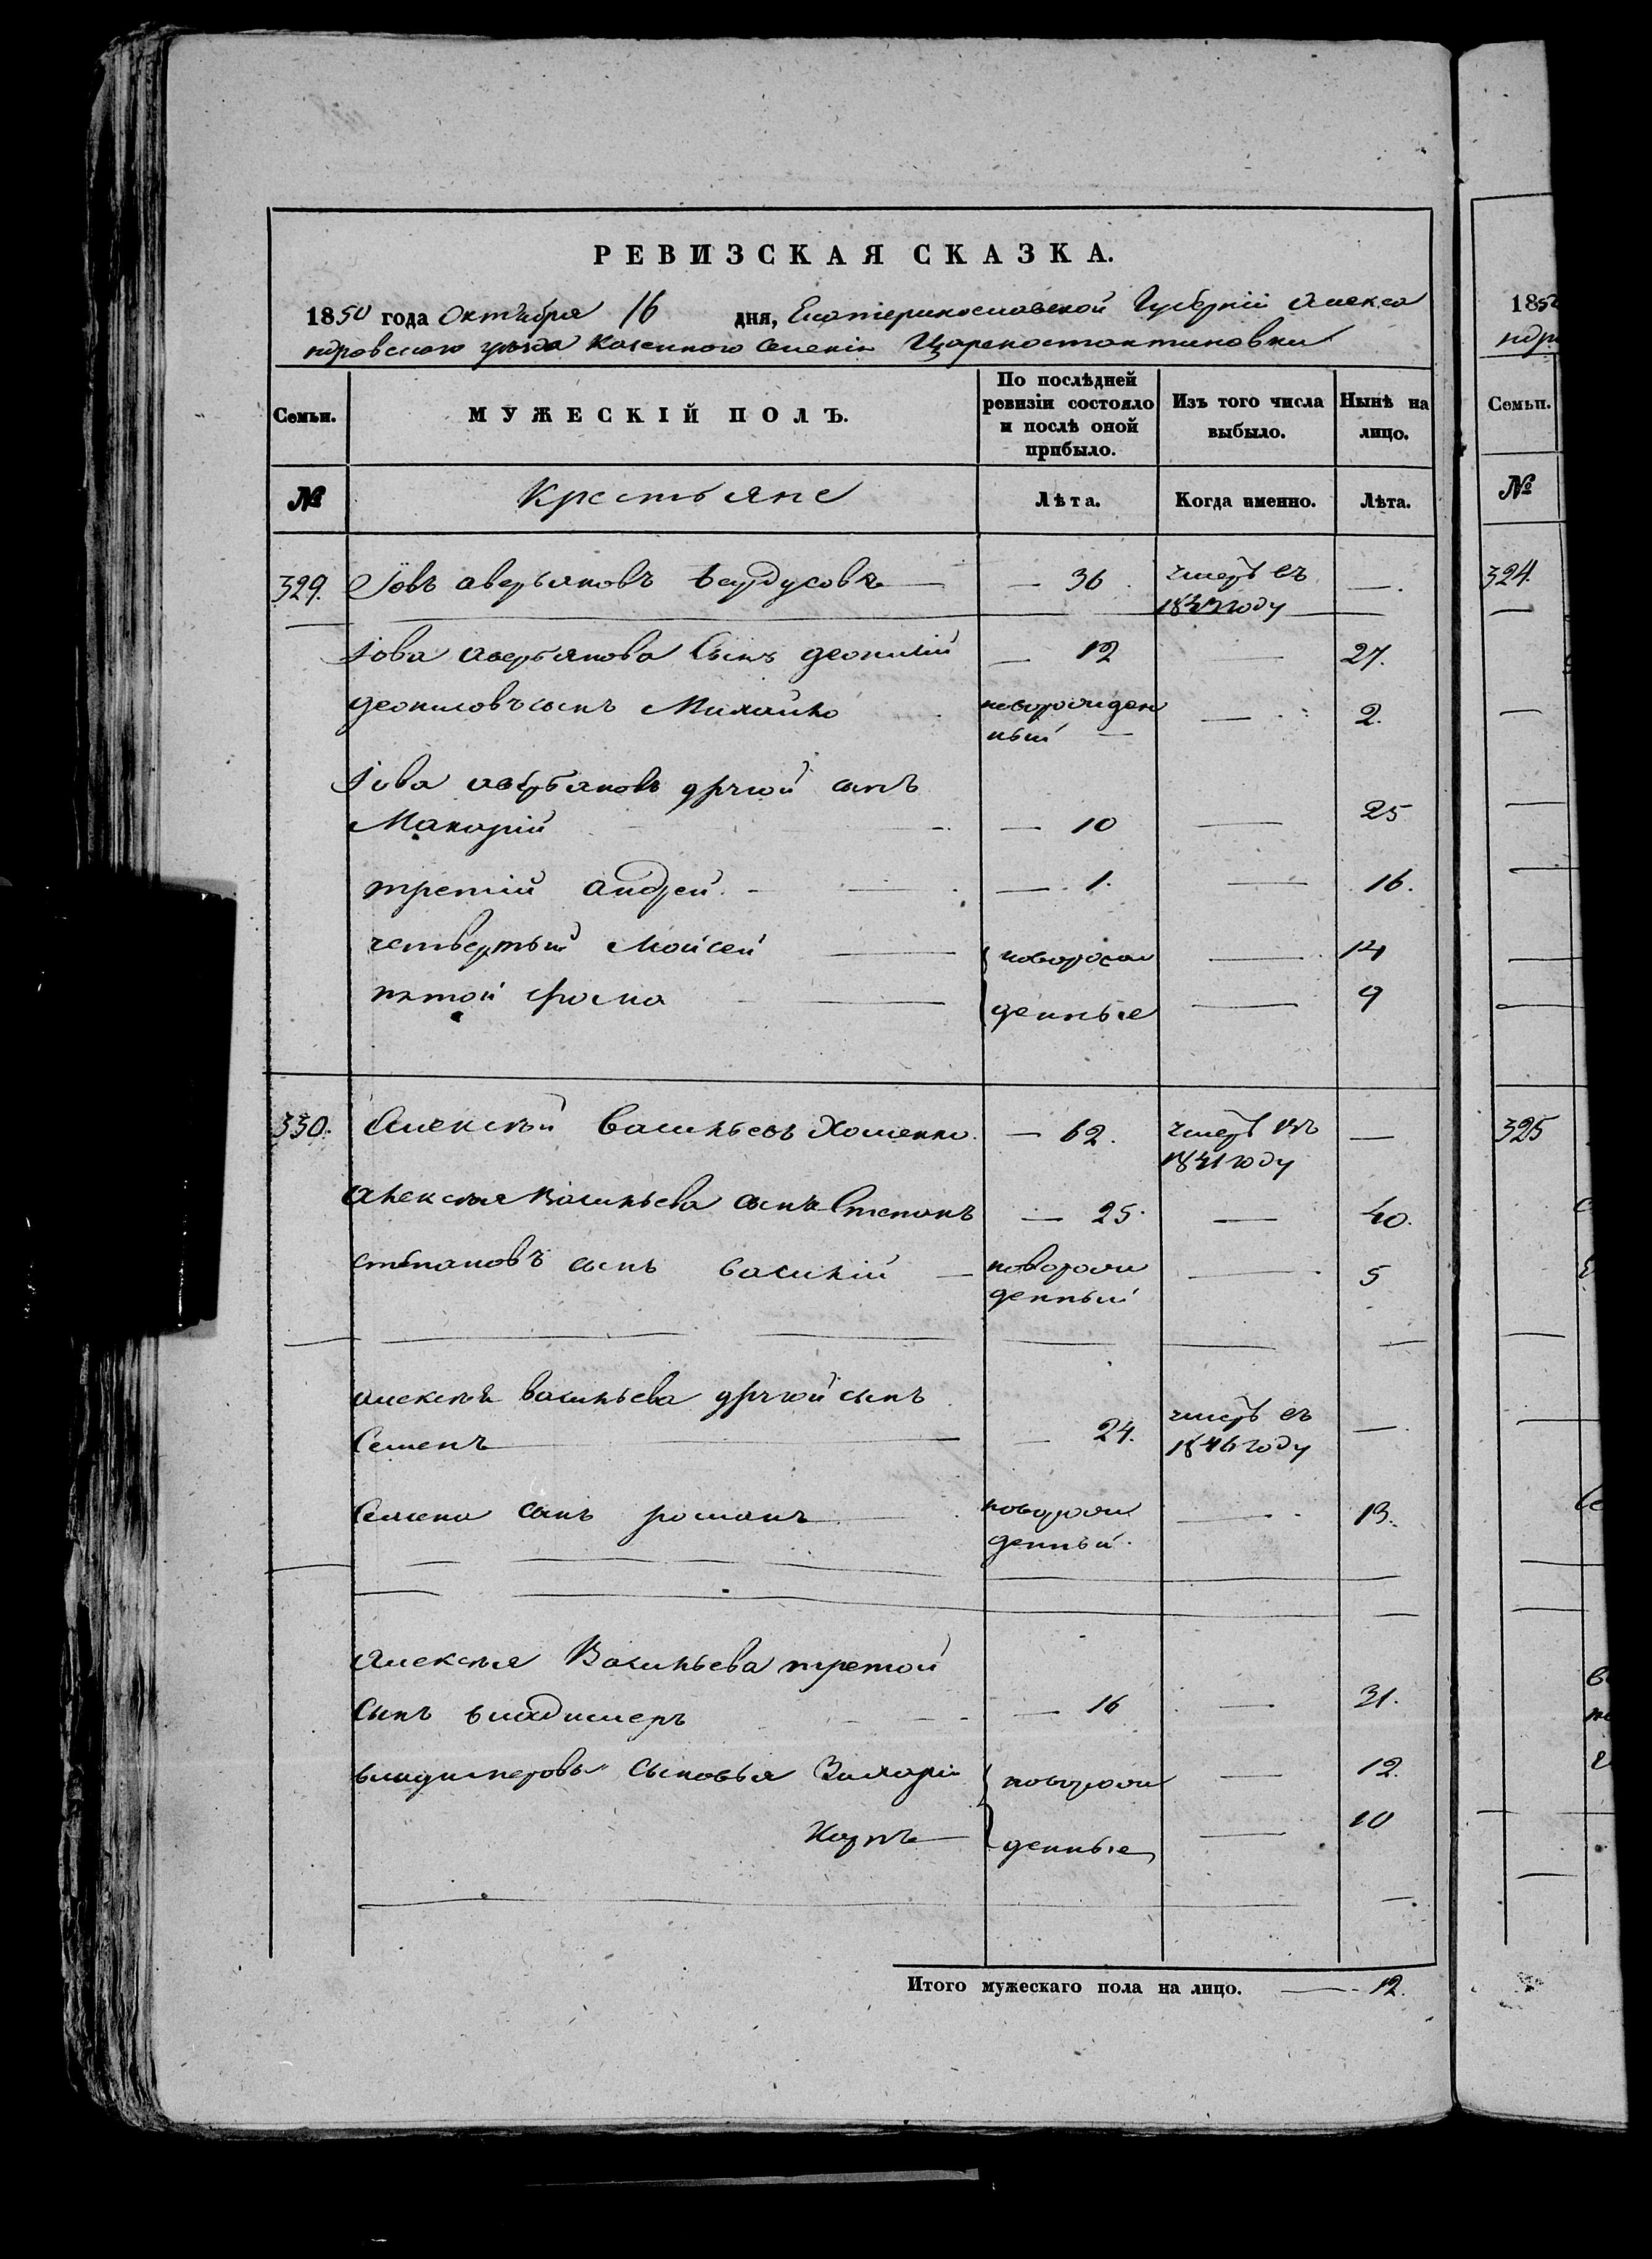 РЕВИЗСКАЯ СКАЗКА.
1850 года Октября 16 дня, Екатеринославской Губерніи Алекса
ндровского уезда Казенного Селенія Цареконстантиновки
Семьи. МУЖЕСКІЙ ПОЛЪ. По послѣдней ревизіи состояло и послѣ оной прибыло. Изъ того числа выбыло. Нынѣ на лицо.
№ Крестьяне Лѣта. Когда именно. Лѣта.
329. Іовъ аверьяновъ — 36 умеръ въ —
году
Іова аверьянова Сынъ — 12 — 27.
сынъ Михайло новорожден — 2.
ный —
Іова аверьяновъ другой сынъ
Макарій — 10 — 25
третій андрей — 1. — 16.
четвертый Моисей — новорож — 14
пятой — денные — 9
330. Алексѣй Васильевъ Хоменко. — 62. умеръ въ —
1841 году
Алексѣя Васильева сынъ Степанъ — 25. — 40.
степановъ сынъ василій — новорож — 5
денный
алексѣя васильева другой сынъ
Семенъ — 24. умеръ въ —
1846 году
Семена сынъ романъ новорож — 13.
денный.
Алексѣя Васильева третой
Сынъ владимеръ — 16 — 31.
владимеровы Сыновья Захарій новорож — 12.
Карпъ — денные — 10
Итого мужескаго пола на лицо. — 12.
1850
ндр
Семьи.
№
324.
325